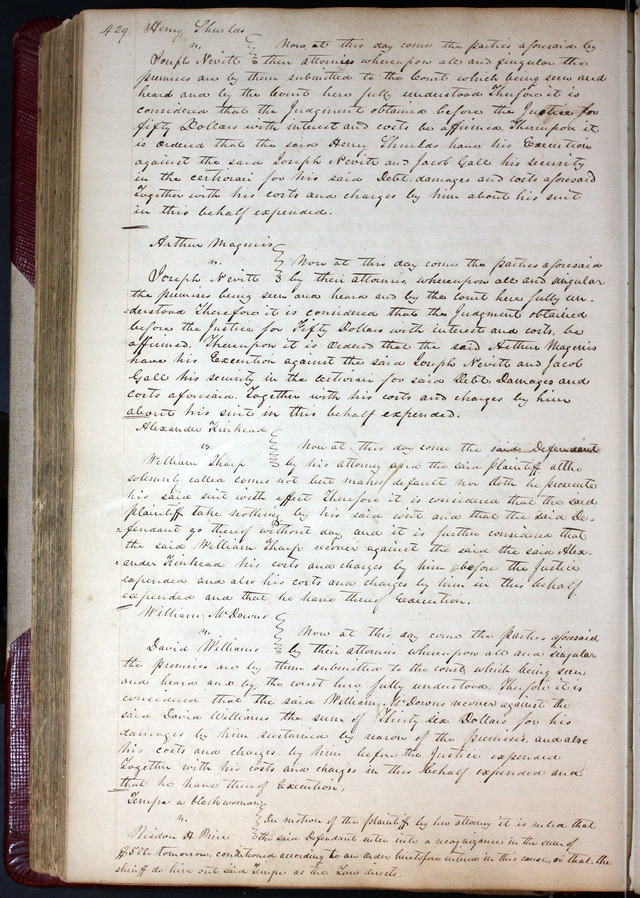 429. Henry Shurlds
vs. Now at this day comes the parties aforesaid by
Joseph Nevitt their attornies whereupon all and singular the
premises are by them submitted to the Court which being seen and
heard and by the Court here fully understood Therefore it is
considered that the Judgment obtained before the Justice for
fifty Dollars with interest and costs be affirmed, Thereupon it
is ordered that the said Henry Shurlds have his Execution
against the said Joseph Nevitt and Jacob Gall his security
in the certiorari for his said Debt. damages and costs aforesaid
together with his costs and charges by him about his suit
in this behalf expended.
Arthur Magenis
vs. Now at this day comes the parties aforesaid
Joseph Nevitt by their attornies, whereupon all and singular
the premises being seen and heard and by the Court here fully un-
-derstood Therefore it is considered that the Judgment obtained
before the Justice for Fifty Dollars with interest and costs, be
affirmed, Thereupon it is ordered that the said Arthur Magenis
have his Execution against the said Joseph Nevitt and Jacob
Gall his security in the certiorari for said Debt, Damages and
costs aforesaid. Together with his costs and charges by him
about his suit in this behalf expended.
Alexander Kinkead
vs. Now at this day come the said Defendant
William Tharp by his attorney and the said Plaintiff altho
solemnly called comes not but makes default nor doth he prosecute
his said suit with effect Therefore it is considered that the said
plaintiff take nothing by his said writ and that the said De-
-fendant go thereof without day and it is further considered that
the said William Tharp recover against the said the said Alex-
-ander Kinkead his costs and charges by him before the Justice
expended and also his costs and charges by him in this behalf
expended and that he have thereof Execution.
William McDowns
vs. Now at this day come the parties aforesaid
David Williams by their attornies whereupon all and singular
the premises are by them submitted to the court, which being seen
and heard and by the court here fully understood, Therefore it is
considered that the said William McDowns recover against the
said David Williams the sum of Thirty six Dollars for his
damages by him sustained by reason of the premises, and also
his costs and charges by him before the Justice expended
Together with his costs and charges in this behalf expended and
that he have thereof Execution.
Tempe a black woman
vs. On motion of the plaintiff by her attorney it is ruled that
Risdon H Price the said Defendant enter into a recognizance in the sum of
$500. tomorrow, conditioned according to an order heretofore entered in this cause, or that the
sheriff do hire out said Tempe as the Law directs.